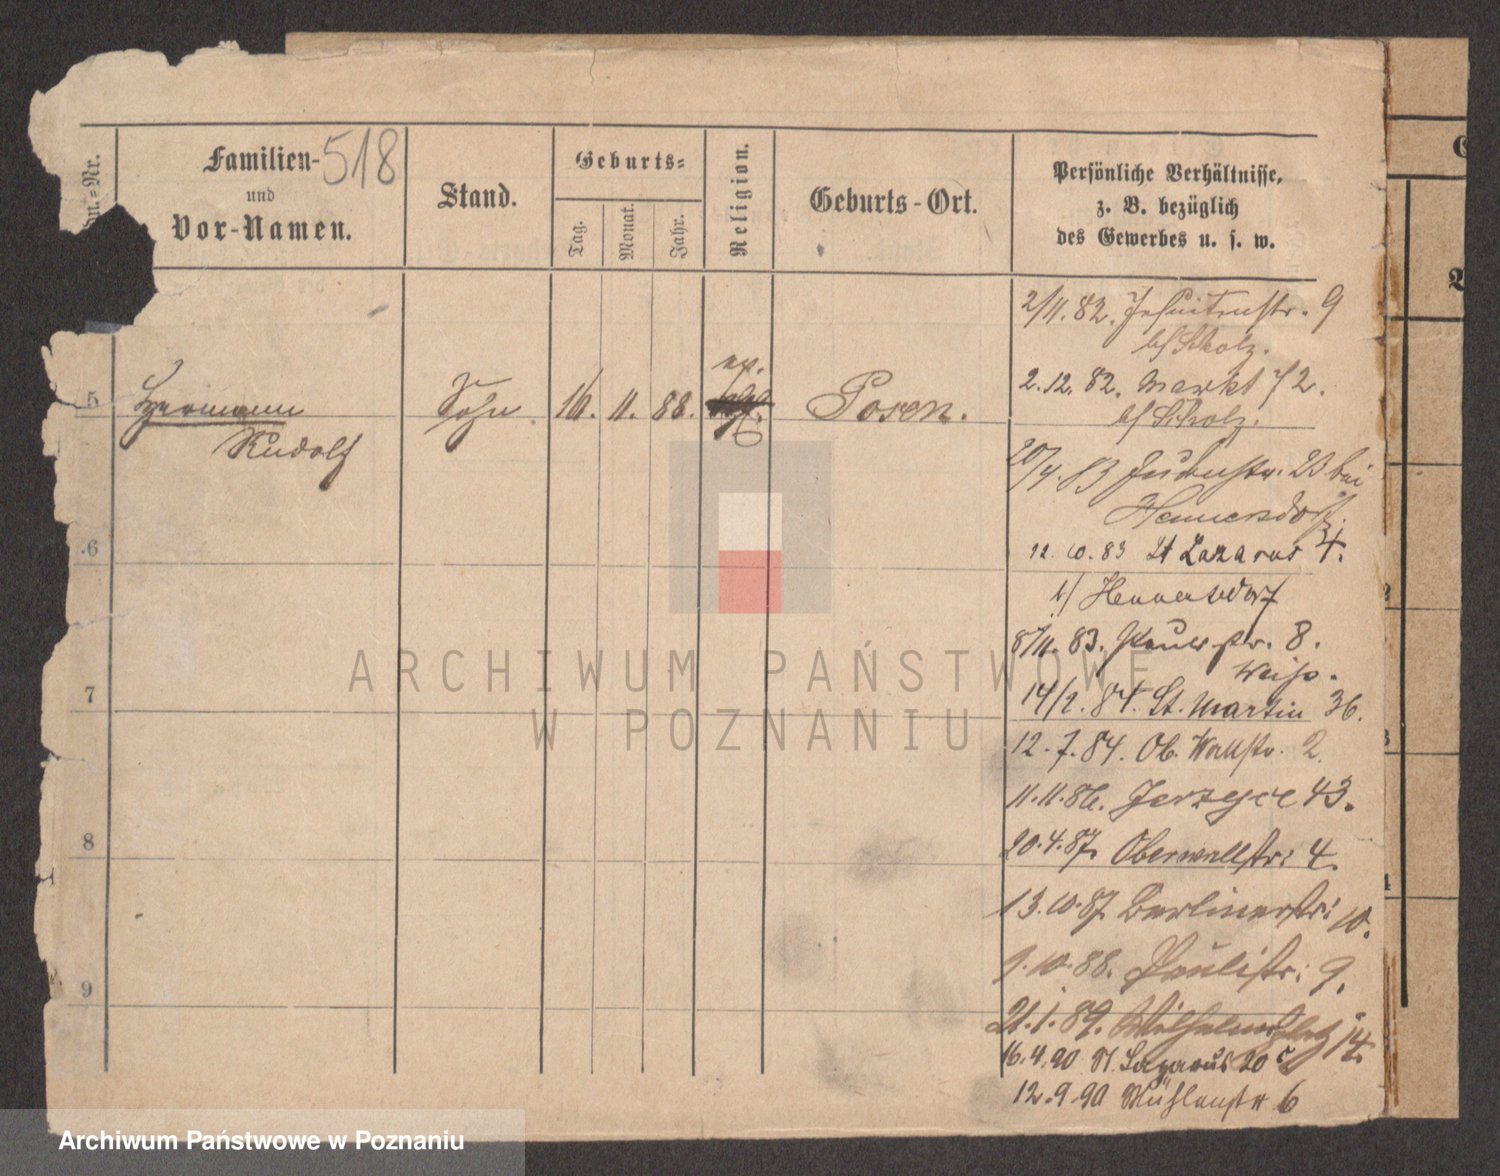 518
Familien-
und
Vor-Namen.
Stand.
Geburts-
Tag.
Monat.
Jahr.
Religion.
Geburts-Ort.
Persönliche Verhältnisse,
z. B. bezüglich
des Gewerbes u. s. w.
5
Hermann
Rudolf
Sohn
16.
11.
88.
Posen.
6
7
8
9
2/11. 82. Jesuitenstr. 9
b/ Scholz.
2. 12. 82. Markt 72.
b/ Scholz.
83 Judenstr. 23 bei
Hennersdorf.
12. 10. 83 St Lazarus 4.
b/ Hennersdorf
8/11. 83. 8.
Weiß.
84. St. Martin 36.
12. 7. 84. Ob. Wallstr. 2.
11. 11. 86. Jerzyce 43.
20. 4. 87. Oberwallstr: 4.
13. 10. 87. Berlinerstr: 10.
9. 10. 88. Paulistr: 9.
21. 1. 89. Wilhelmsplatz 14.
16. 4. 90 St. Lazarus 20 c
12. 9. 90 Mühlenstr 6
ARCHIWUM PAŃSTWOWE
W POZNANIU
Archiwum Państwowe w Poznaniu